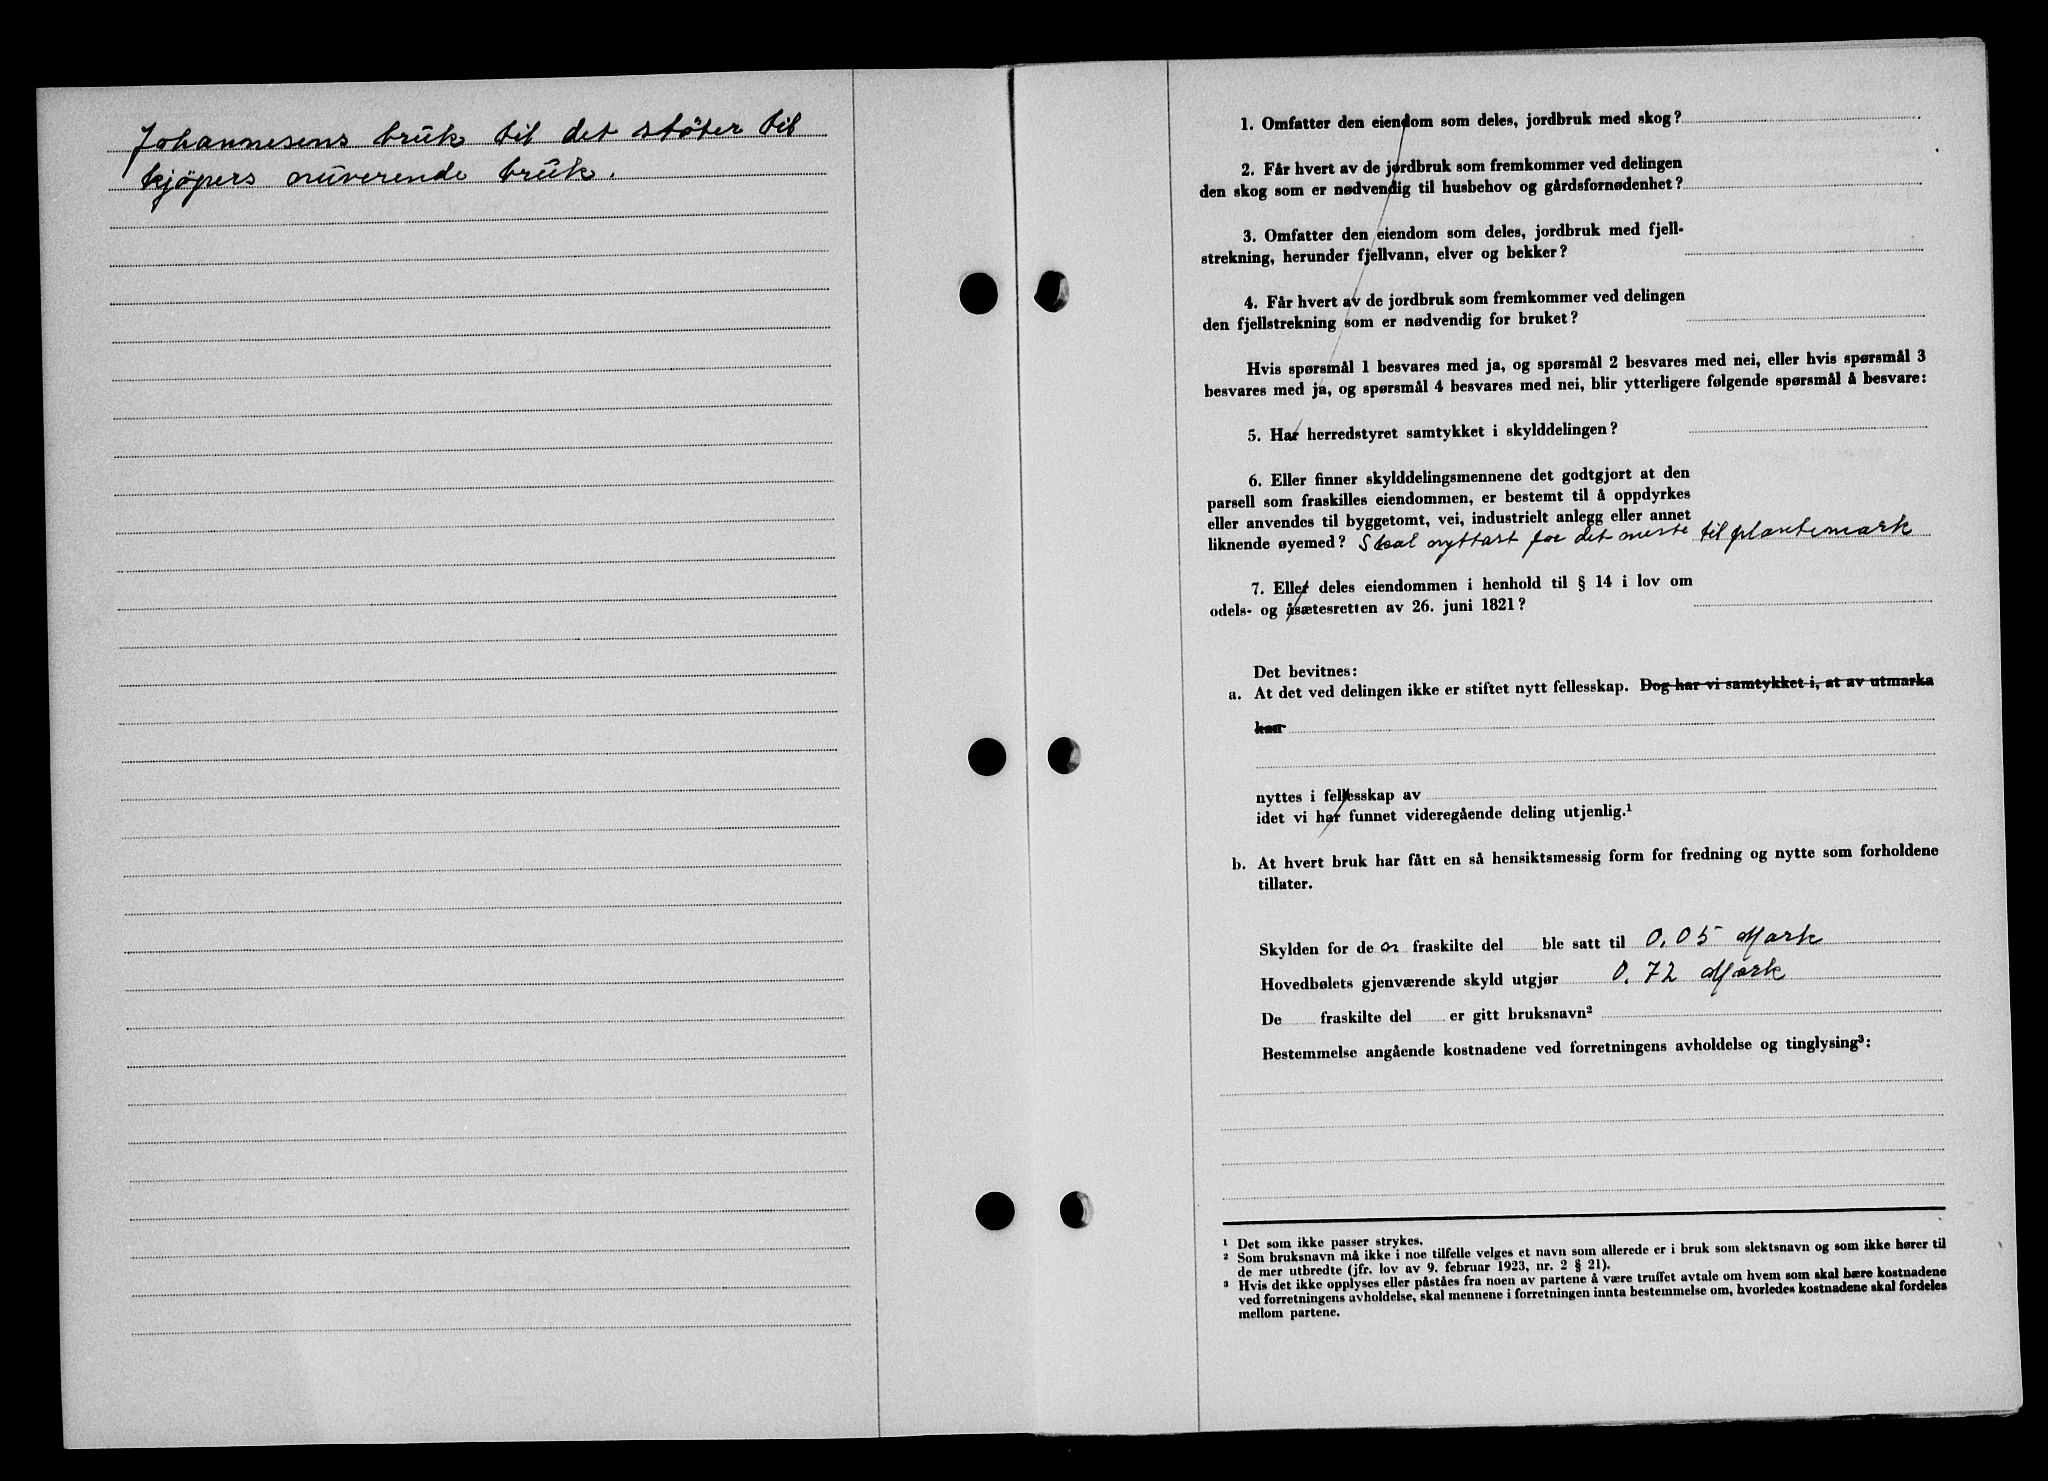 Johannesens bruk til det støter til
kjöpers nuverende bruk.
1. Omfatter den eiendom som deles, jordbruk med skog?
2. Får hvert av de jordbruk som fremkommer ved delingen
den skog som er nødvendig til husbehov og gårdsfornødenhet?
3. Omfatter den eiendom som deles, jordbruk med fjell-
strekning, herunder fjellvann, elver og bekker?
4. Får hvert av de jordbruk som fremkommer ved delingen
den fjellstrekning som er nødvendig for bruket?
Hvis spørsmål 1 besvares med ja, og spørsmål 2 besvares med nei, eller hvis spørsmål 3
besvares med ja, og spørsmål 4 besvares med nei, blir ytterligere følgende spørsmål å besvare:
5. Har herredstyret samtykket i skylddelingen?
6. Eller finner skylddelingsmennene det godtgjort at den
parsell som fraskilles eiendommen, er bestemt til å oppdyrkes
eller anvendes til byggetomt, vei, industrielt anlegg eller annet
liknende øyemed? Skal nyttast for det meste til plantemark
7. Eller deles eiendommen i henhold til § 14 i lov om
odels- og åsætesretten av 26. juni 1821?
Det bevitnes:
a. At det ved delingen ikke er stiftet nytt fellesskap. Dog har vi samtykket i, at av utmarka
kan
nyttes i fellesskap av
idet vi har funnet videregående deling utjenlig.¹
b. At hvert bruk har fått en så hensiktsmessig form for fredning og nytte som forholdene
tillater.
Skylden for de n fraskilte del ble satt til 0,05 Mark
Hovedbølets gjenværende skyld utgjør 0.72 Mark
De fraskilte del er gitt bruksnavn²
Bestemmelse angående kostnadene ved forretningens avholdelse og tinglysing³:
¹ Det som ikke passer strykes.
² Som bruksnavn må ikke i noe tilfelle velges et navn som allerede er i bruk som slektsnavn og som ikke hører til
de mer utbredte (jfr. lov av 9. februar 1923, nr. 2 § 21).
³ Hvis det ikke opplyses eller påståes fra noen av partene å være truffet avtale om hvem som skal bære kostnadene
ved forretningens avholdelse, skal mennene i forretningen innta bestemmelse om, hvorledes kostnadene skal fordeles
mellom partene.